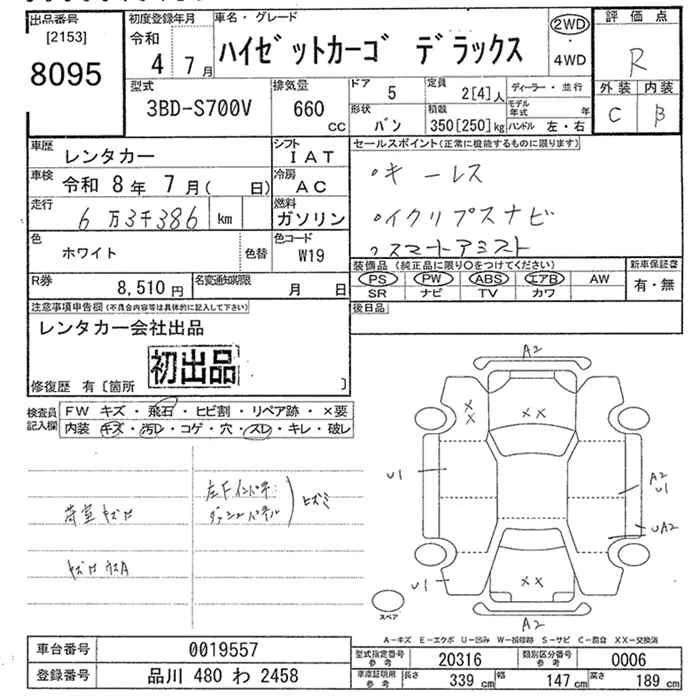 出品番号
[2153]
8095
初度登録年月
令和
4 年 7 月
車名・グレード
ハイゼットカーゴ デラックス
2WD
・
4WD
評価点
R
外装 内装
C B
型式
3BD-S700V
排気量
660
CC
ドア 5
形状 バン
定員 2[4]人
積数 350[250]kg
ディーラー・並行
モデル年式 年
ハンドル 左・右
車歴 レンタカー
シフト IAT
車検 令和 8年 7月( 日)
冷房 AC
走行 6万3千386 km
燃料 ガソリン
色 ホワイト 色替
色コード W19
R券 8,510円
名変通知期限 月 日
セールスポイント(正常に機能するものに限ります)
・キーレス
・イクリプスナビ
・スマートアシスト
装備品 (純正品に限り○をつけてください)
PS PW ABS エアB AW
SR ナビ TV カワ
新車保証書
有・無
後日品
注意事項申告欄(不具合内容等は具体的に記入して下さい)
レンタカー会社出品
初出品
修復歴 有〔箇所 〕
検査員
記入欄
FW キズ・飛石・ヒビ割・リペア跡・×要
内装 キズ・汚レ・コゲ・穴・スレ・キレ・破レ
荷室
左Fインパネ
ダッシュパネル
ヒズミ
A2
××
××
U1
A2
U1
UA2
××
U1
A2
スペア
A-キズ E-エクボ U-凹み W-補修跡 S-サビ C-腐食 XX-交換済
車台番号 0019557
登録番号 品川 480 わ 2458
型式指定番号
参考
20316
類別区分番号
参考
0006
車庫証明用
参考
長さ 339 cm
幅 147 cm
高さ 189 cm